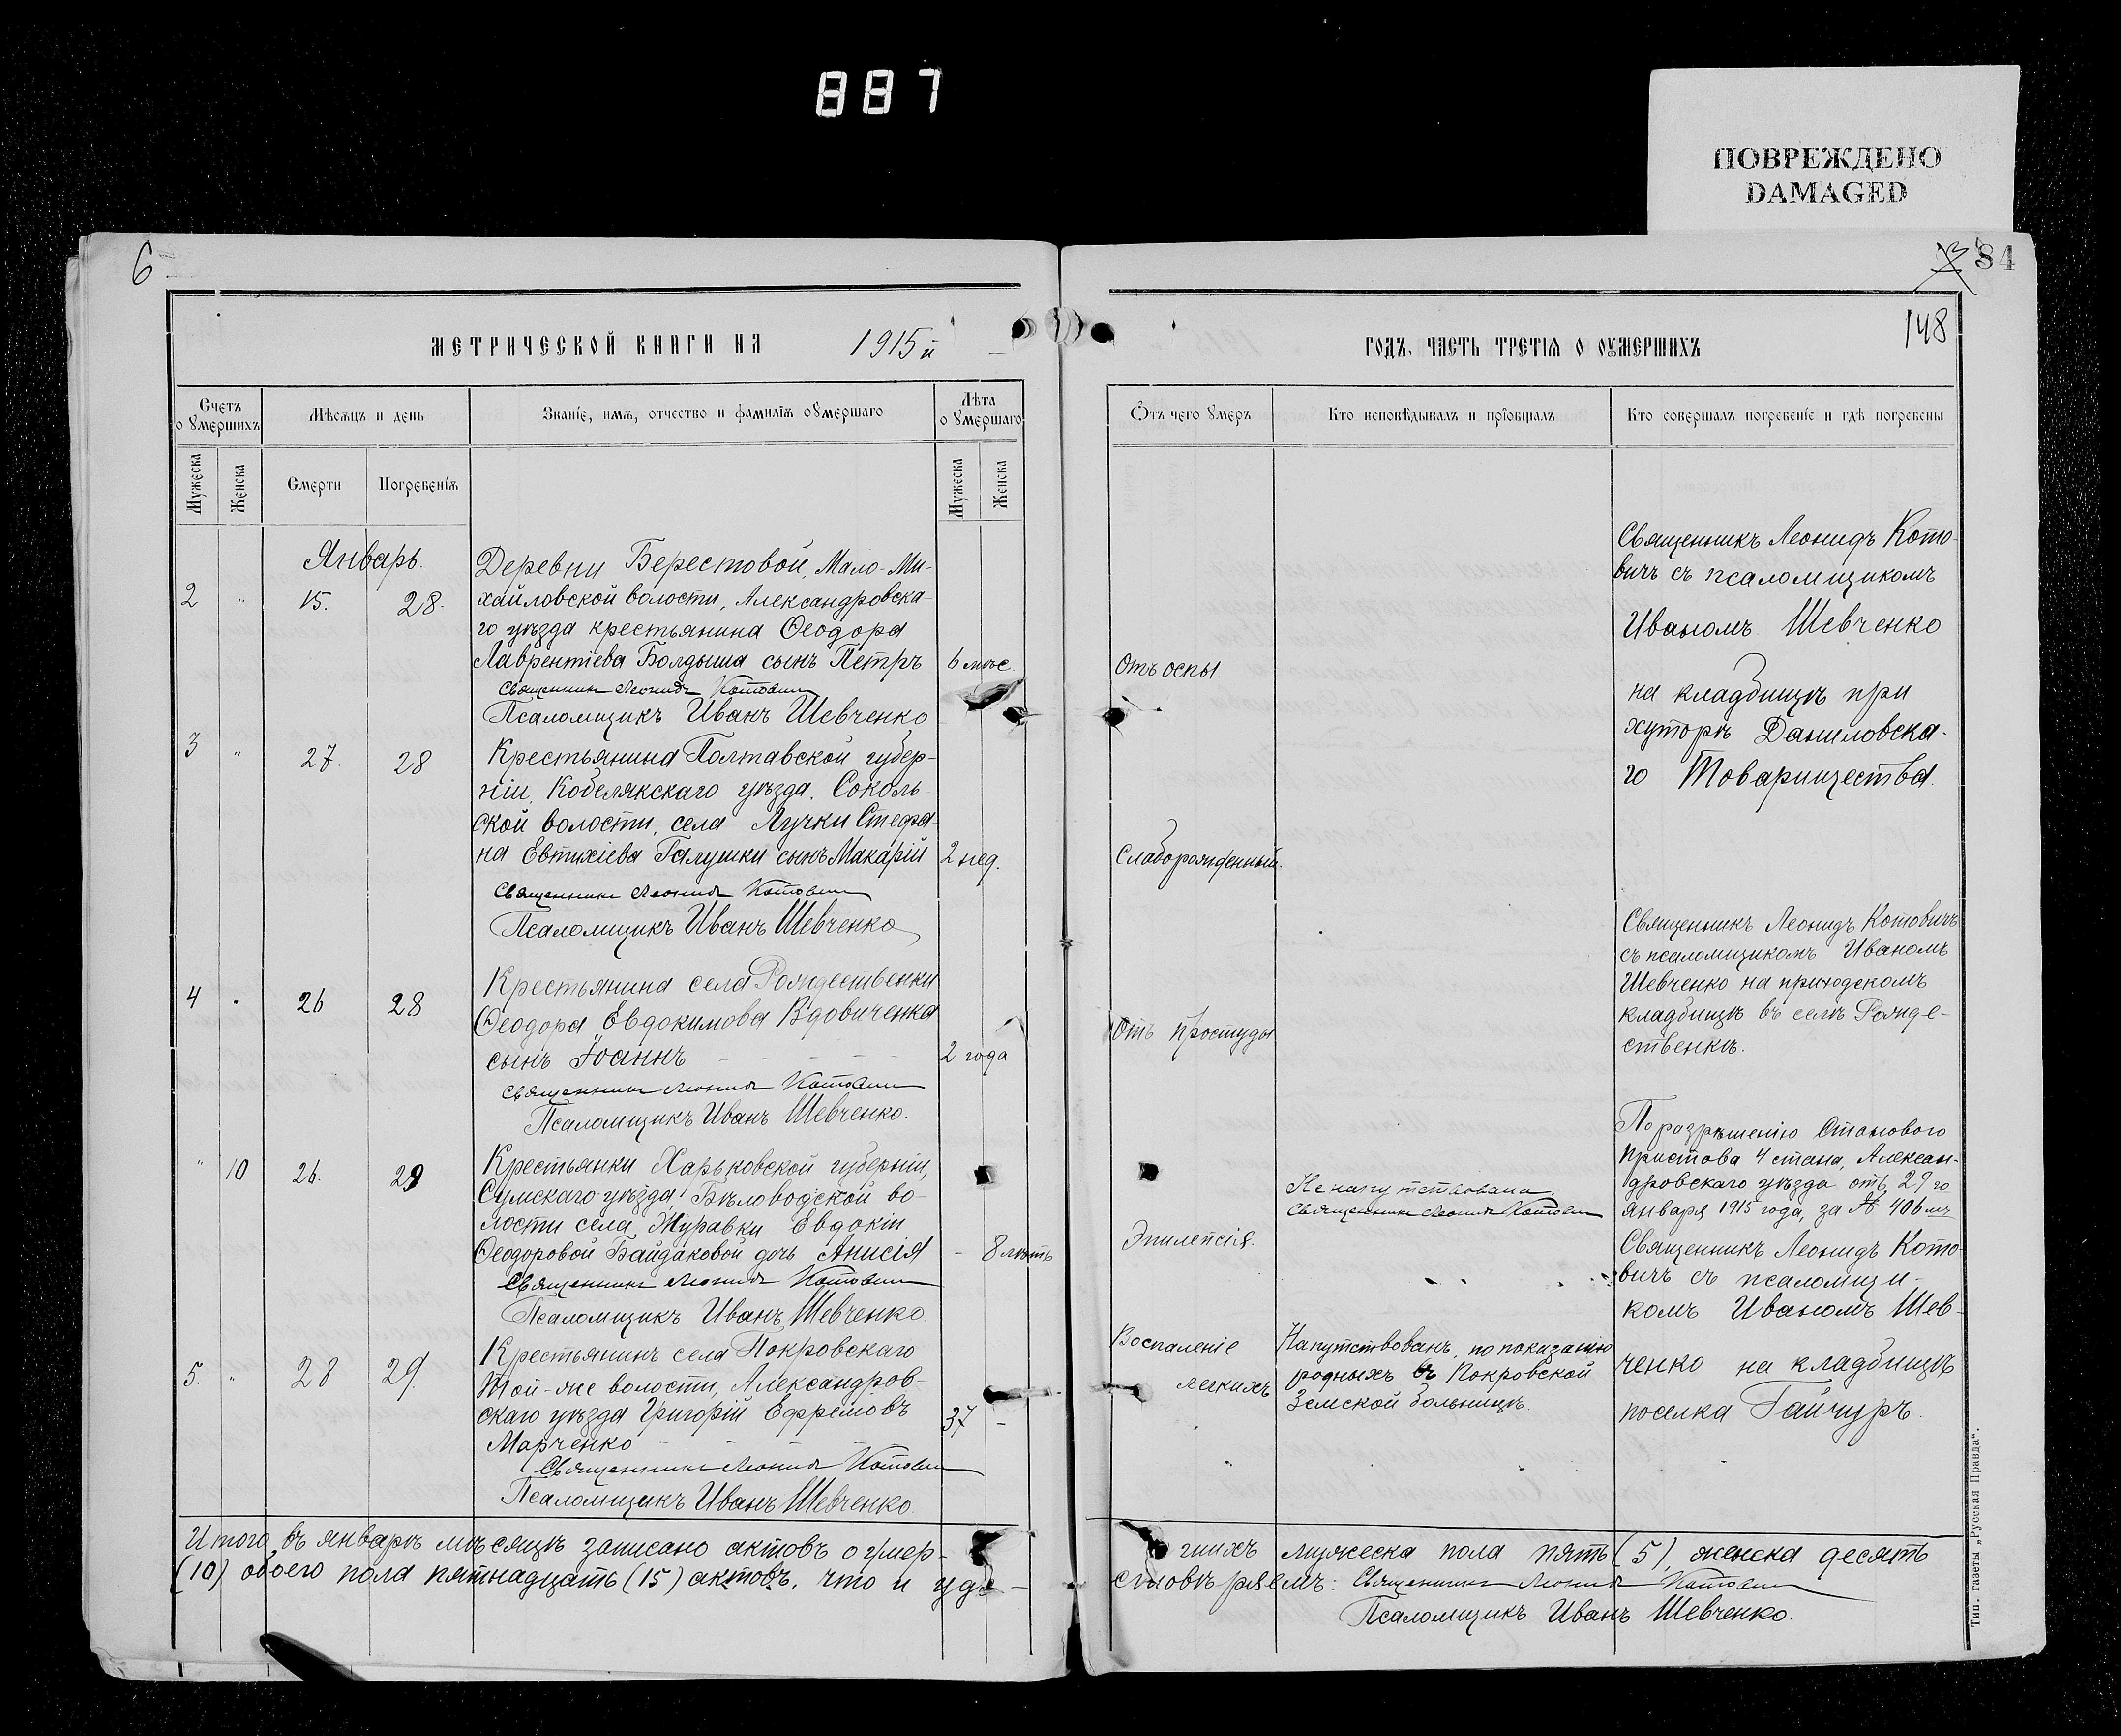 887
ПОВРЕЖДЕНО
DAMAGED
6
84
148
МЕТРИЧЕСКОЙ КНИГИ НА 1915 й
Счетъ о ѹмершихъ
Мѣсѧцъ и день
Званіе, имѧ, отчество и фамиліѧ оумершаго
Лѣта оумершаго
Мужеска
Женска
Смерти
Погребеніѧ
Мужеска
Женска
Январь.
2 " 15. 28.
Деревни Берестовой, Мало-Ми-
хайловской волости, Александровска-
го уѣзда крестьянина Ѳеодора
Лаврентіева Болдыша сынъ Петръ 6 мѣс.
Священникъ Леонидъ Котовичъ
Псаломщикъ Иванъ Шевченко
3 " 27. 28
Крестьянина Полтавской губер-
ніи, Кобелякскаго уѣзда. Соколь-
ской волости, села Лучки Стефа-
на Евтихіева Галушки сынъ Макарій 2 нед.
Священникъ Леонидъ Котовичъ
Псаломщикъ Иванъ Шевченко
4 " 26 28
Крестьянина села Рождественки
Ѳеодора Евдокимова Вдовиченка
сынъ Іоаннъ - - - - 2 года
Священникъ Леонидъ Котовичъ
Псаломщикъ Иванъ Шевченко.
" 10 26. 29
Крестьянки Харьковской губерніи,
Сумскаго уѣзда, Бѣловодской во-
лости села Журавки Евдокіи
Ѳеодоровой Байдаковой дочь Анисія - 8 лѣтъ
Священникъ Леонидъ Котовичъ
Псаломщикъ Иванъ Шевченко.
5. " 28 29.
Крестьянинъ села Покровскаго
той-же волости, Александров-
скаго уѣзда Григорій Ефремовъ 37 -
Марченко - - - -
Священникъ Леонидъ Котовичъ
Псаломщикъ Иванъ Шевченко.
Итого въ январѣ мѣсяцѣ записано актовъ о умер-
(10) обоего пола пятнадцать (15) актовъ, что и удо-
ГОДЪ, ЧАСТЬ ТРЕТІѦ О ОУМЕРШИХЪ
Ѿтъ чего ѹмеръ
Кто исповѣдывалъ и пріобщалъ
Кто совершалъ погребеніе и гдѣ погребены
Отъ оспы.
Слаборожденный.
Отъ простуды
Эпилепсія.
Воспаленіе
легкихъ
Не напутствована.
Священникъ Леонидъ Котовичъ
Напутствованъ, по показанію
родныхъ въ Покровской
Земской больницѣ.
Священникъ Леонидъ Кото-
вичъ съ псаломщикомъ
Иваномъ Шевченко
на кладбищѣ при
хуторѣ Даниловска-
го Товарищества.
Священникъ Леонидъ Котовичъ
съ псаломщикомъ Иваномъ
Шевченко на приходскомъ
кладбищѣ въ селѣ Рожде-
ственкѣ.
По разрѣшенію Станового
Пристава 4 стана, Алексан-
дровскаго уѣзда отъ 29 го
января 1915 года, за № 406 мъ
Священникъ Леонидъ Кото-
вичъ съ псаломщи-
комъ Иваномъ Шев-
ченко на кладбищѣ
поселка Гайчуръ.
шихъ мужеска пола пять (5), женска десять
стовѣряемъ: Священникъ Леонидъ Котовичъ
Псаломщикъ Иванъ Шевченко.
Тип. газеты „Русская Правда“.